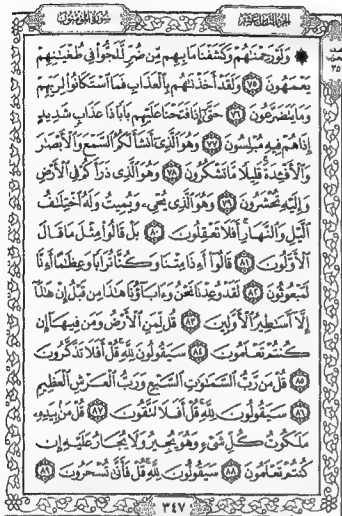 الجزء الثامن عشر سورة المؤمنون
۞ وَلَوْ رَحِمْنَٰهُمْ وَكَشَفْنَا مَا بِهِم مِّن ضُرٍّ لَّلَجُّوا۟ فِى طُغْيَٰنِهِمْ
يَعْمَهُونَ ٧٥ وَلَقَدْ أَخَذْنَٰهُم بِٱلْعَذَابِ فَمَا ٱسْتَكَانُوا۟ لِرَبِّهِمْ
وَمَا يَتَضَرَّعُونَ ٧٦ حَتَّىٰٓ إِذَا فَتَحْنَا عَلَيْهِم بَابًا ذَا عَذَابٍ شَدِيدٍ
إِذَا هُمْ فِيهِ مُبْلِسُونَ ٧٧ وَهُوَ ٱلَّذِىٓ أَنشَأَ لَكُمُ ٱلسَّمْعَ وَٱلْأَبْصَٰرَ
وَٱلْأَفْـِٔدَةَ ۚ قَلِيلًا مَّا تَشْكُرُونَ ٧٨ وَهُوَ ٱلَّذِى ذَرَأَكُمْ فِى ٱلْأَرْضِ
وَإِلَيْهِ تُحْشَرُونَ ٧٩ وَهُوَ ٱلَّذِى يُحْىِۦ وَيُمِيتُ وَلَهُ ٱخْتِلَٰفُ
ٱلَّيْلِ وَٱلنَّهَارِ ۚ أَفَلَا تَعْقِلُونَ ٨٠ بَلْ قَالُوا۟ مِثْلَ مَا قَالَ
ٱلْأَوَّلُونَ ٨١ قَالُوٓا۟ أَءِذَا مِتْنَا وَكُنَّا تُرَابًا وَعِظَٰمًا أَءِنَّا
لَمَبْعُوثُونَ ٨٢ لَقَدْ وُعِدْنَا نَحْنُ وَءَابَآؤُنَا هَٰذَا مِن قَبْلُ إِنْ هَٰذَآ
إِلَّآ أَسَٰطِيرُ ٱلْأَوَّلِينَ ٨٣ قُل لِّمَنِ ٱلْأَرْضُ وَمَن فِيهَآ إِن
كُنتُمْ تَعْلَمُونَ ٨٤ سَيَقُولُونَ لِلَّهِ ۚ قُلْ أَفَلَا تَذَكَّرُونَ
٨٥ قُلْ مَن رَّبُّ ٱلسَّمَٰوَٰتِ ٱلسَّبْعِ وَرَبُّ ٱلْعَرْشِ ٱلْعَظِيمِ
٨٦ سَيَقُولُونَ لِلَّهِ ۚ قُلْ أَفَلَا تَتَّقُونَ ٨٧ قُلْ مَنۢ بِيَدِهِۦ
مَلَكُوتُ كُلِّ شَىْءٍ وَهُوَ يُجِيرُ وَلَا يُجَارُ عَلَيْهِ إِن
كُنتُمْ تَعْلَمُونَ ٨٨ سَيَقُولُونَ لِلَّهِ ۚ قُلْ فَأَنَّىٰ تُسْحَرُونَ ٨٩
٣٤٧
٣٥